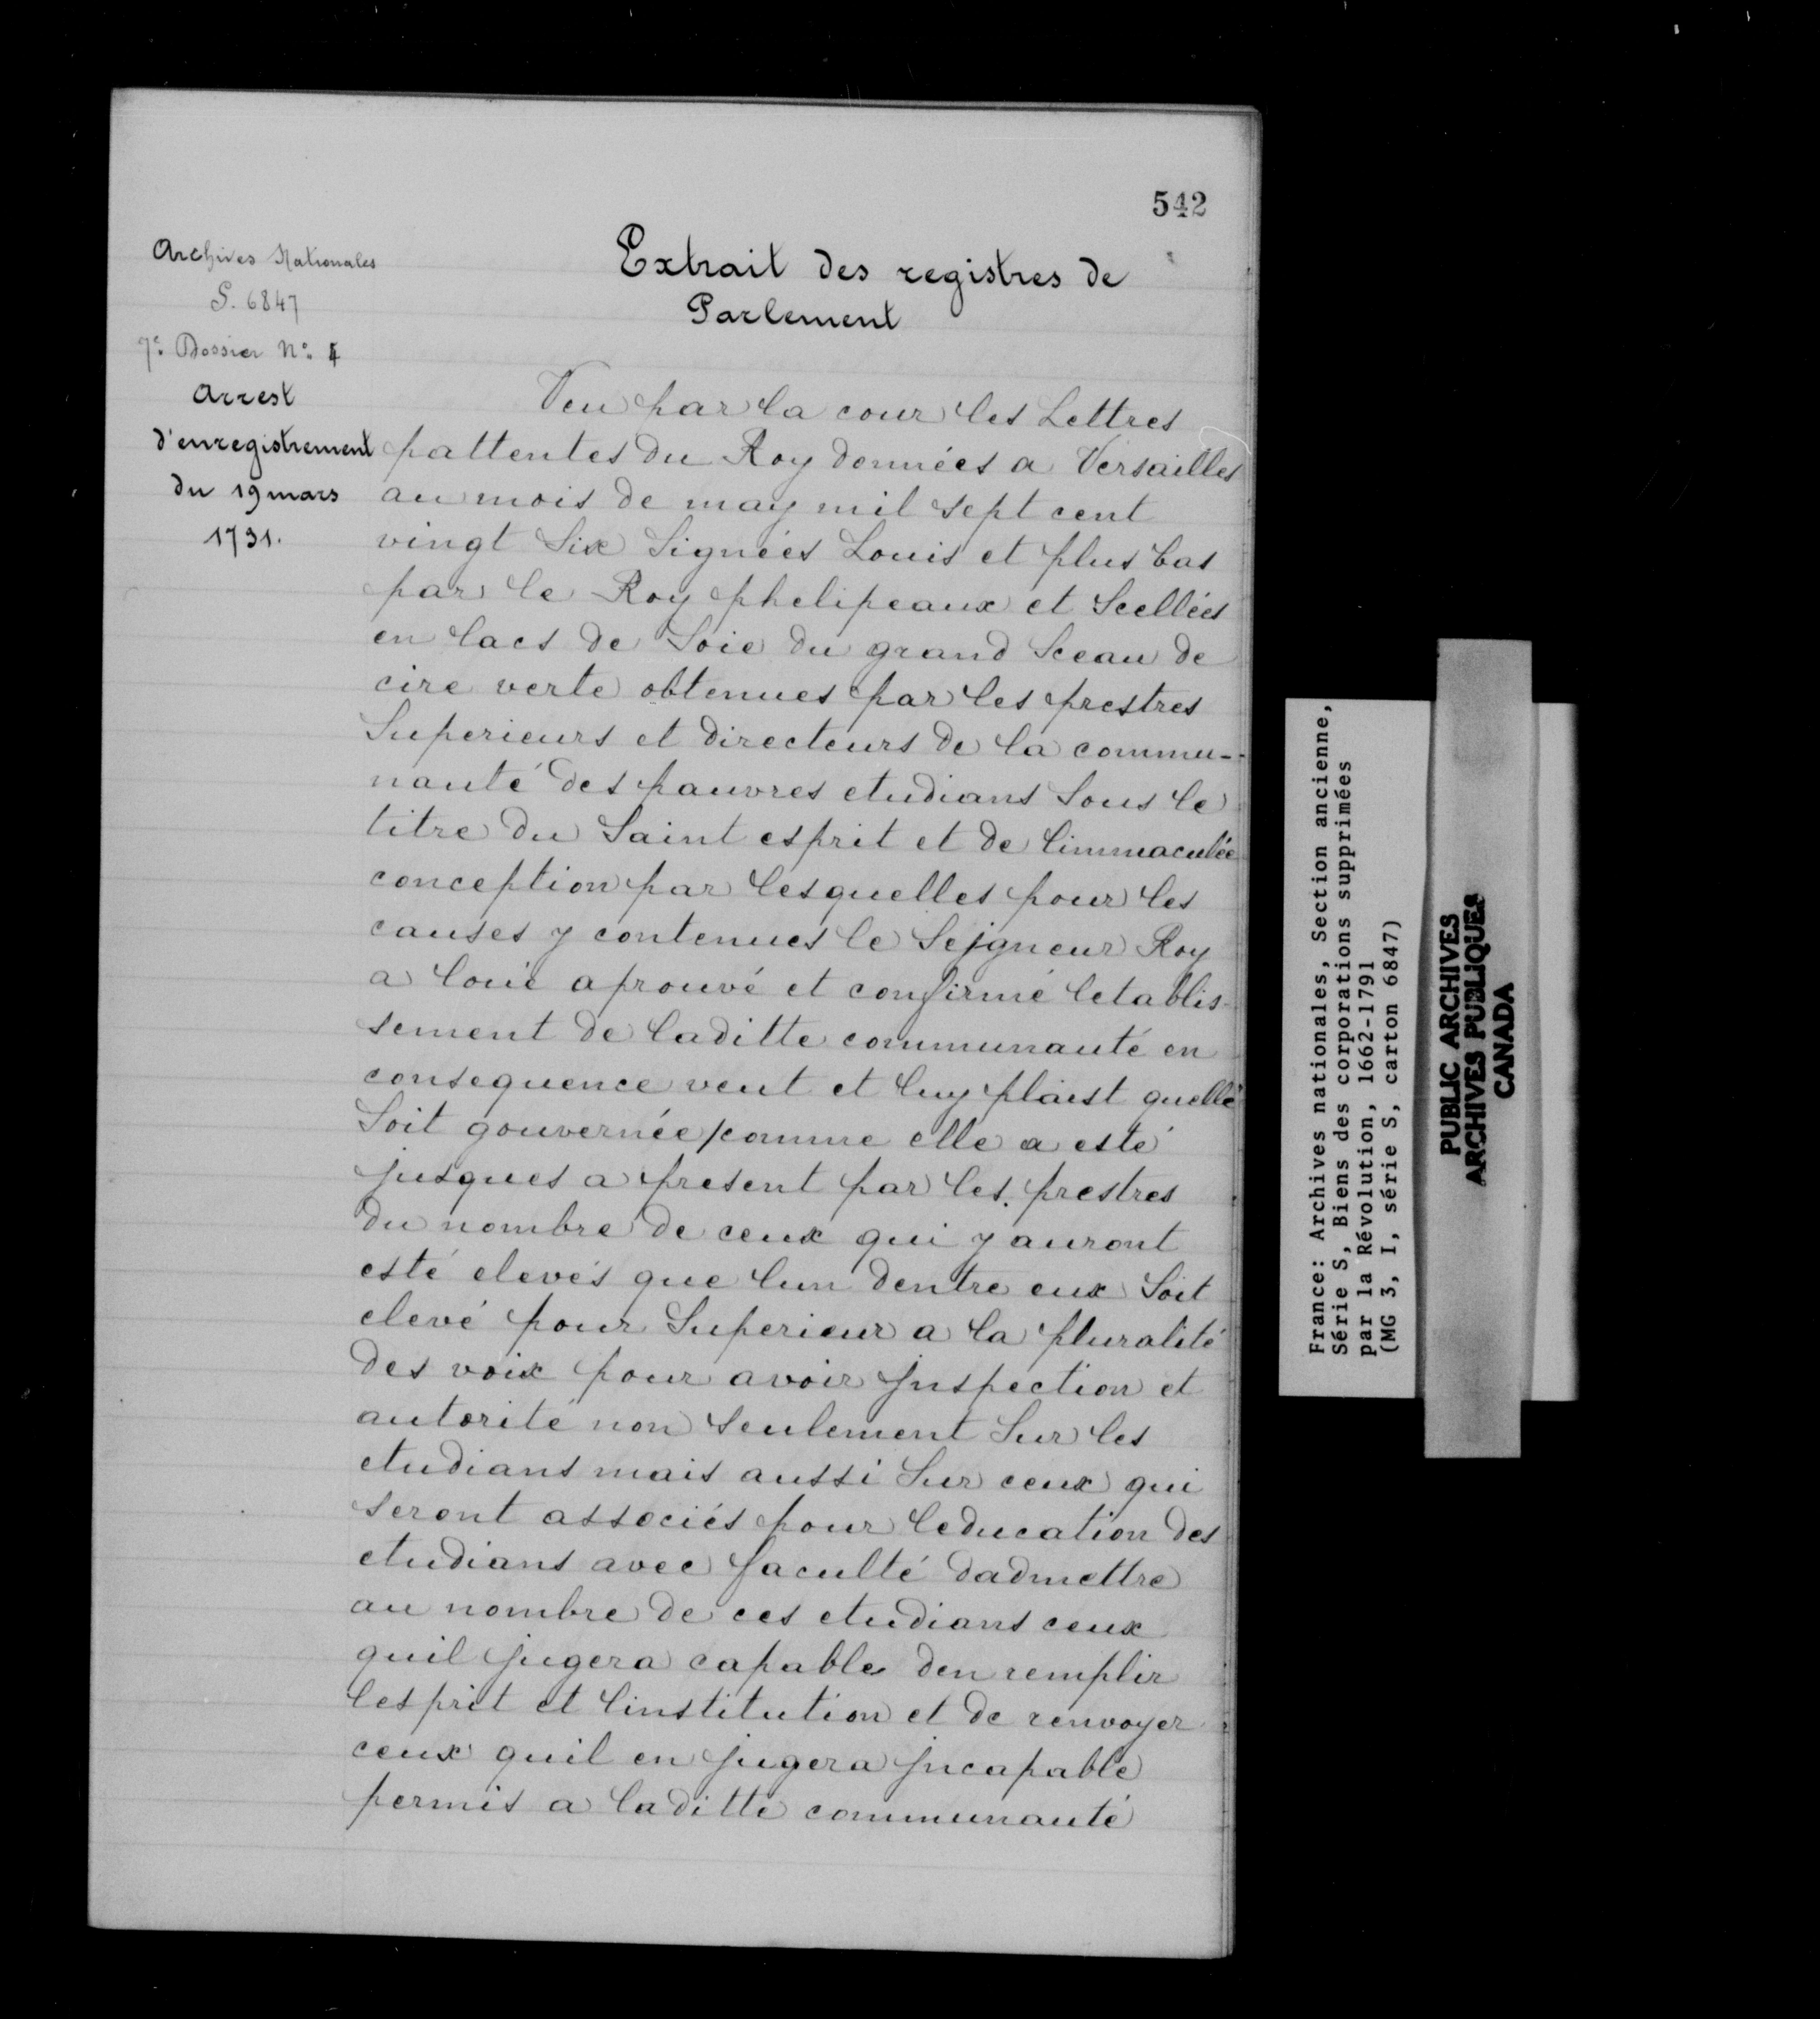 542
Archives Nationales
S. 6847
7e. Dossier No. 4
Arrest
d'enregistrement
du 19 mars
1731.
Extrait des registres de
Parlement
Veu par la cour les Lettres
pattentes du Roy données a Versailles
au mois de may mil sept cent
vingt Six Signées Louis et plus bas
par le Roy phelipeaux et Scellées
en lacs de Soie du grand Sceau de
cire verte obtenues par les prestres
Superieurs et directeurs de la commu-
nauté des pauvres etudians Sous le
titre du Saint esprit et de limmaculée
conception par lesquelles pour les
causes y contenues le Sejgneur Roy
a loué aprouvé et confirmé letablis-
sement de laditte communauté en
consequence veut et luy plaist quelle
Soit gouvernée comme elle a esté
jusques a present par les prestres
du nombre de ceux qui y auront
esté elevés que lun dentre eux Soit
elevé pour Superieur a la pluralité
des voix pour avoir Jnspection et
autorité non seulement Sur les
etudians mais aussi Sur ceux qui
seront associés pour leducation des
etudians avec faculté dadmettre
au nombre de ces etudians ceux
quil jugera capable den remplir
lesprit et linstitution et de renvoyer
ceux quil en jugera Jncapable
permis a laditte communauté
France: Archives nationales, Section ancienne,
Série S, Biens des corporations supprimées
par la Révolution, 1662-1791
(MG 3, I, série S, carton 6847)
PUBLIC ARCHIVES
ARCHIVES PUBLIQUES
CANADA